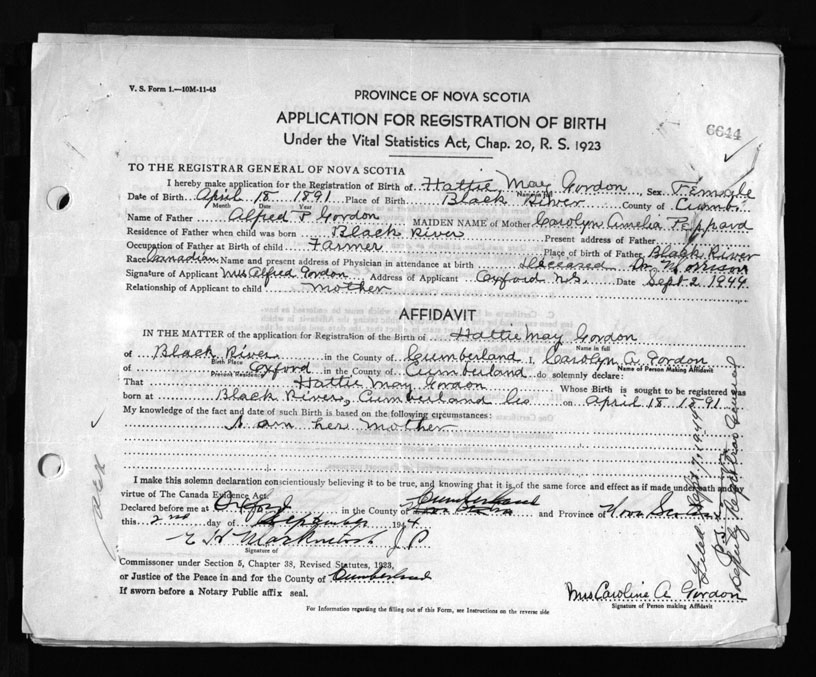 V. S. Form 1.—10M-11-43
PROVINCE OF NOVA SCOTIA
APPLICATION FOR REGISTRATION OF BIRTH
6644
Under the Vital Statistics Act, Chap. 20, R. S. 1923
TO THE REGISTRAR GENERAL OF NOVA SCOTIA
I hereby make application for the Registration of Birth of Hattie May Gordon, Sex Female
Name in full
Date of Birth April 18 1891 Place of Birth Black River County of Cumb.
Month Date Year
Name of Father Alfred P Gordon MAIDEN NAME of Mother Carolyn Amelia Peppard
Residence of Father when child was born Black River Present address of Father
Occupation of Father at Birth of child Farmer Place of birth of Father Black River
Race Canadian Name and present address of Physician in attendance at birth Deceased Dr
Signature of Applicant Mrs Alfred Gordon Address of Applicant Oxford N.S. Date Sept 2, 1944
Relationship of Applicant to child Mother
AFFIDAVIT
IN THE MATTER of the application for Registration of the Birth of Hattie May Gordon
Name in full
of Black River in the County of Cumberland I, Carolyn A. Gordon
Birth Place Name of Person Making Affidavit
of Oxford in the County of Cumberland do solemnly declare:
Present Residence
That Hattie May Gordon Whose Birth is sought to be registered was
born at Black River, Cumberland Co on April 18 1891
My knowledge of the fact and date of such Birth is based on the following circumstances:
I am her mother
I make this solemn declaration conscientiously believing it to be true, and knowing that it is of the same force and effect as if made under oath and by
virtue of The Canada Evidence Act.
Declared before me at Oxford in the County of Cumberland and Province of Nova Scotia
this 2nd day of September 1944
E H MacKintosh J P
Signature of
Commissioner under Section 5, Chapter 38, Revised Statutes, 1923,
or Justice of the Peace in and for the County of Cumberland
If sworn before a Notary Public affix seal.
Mrs Caroline A Gordon
Signature of Person making Affidavit
For Information regarding the filling out of this Form, see Instructions on the reverse side
Filed Sept 7, 1944
Deputy Registrar General